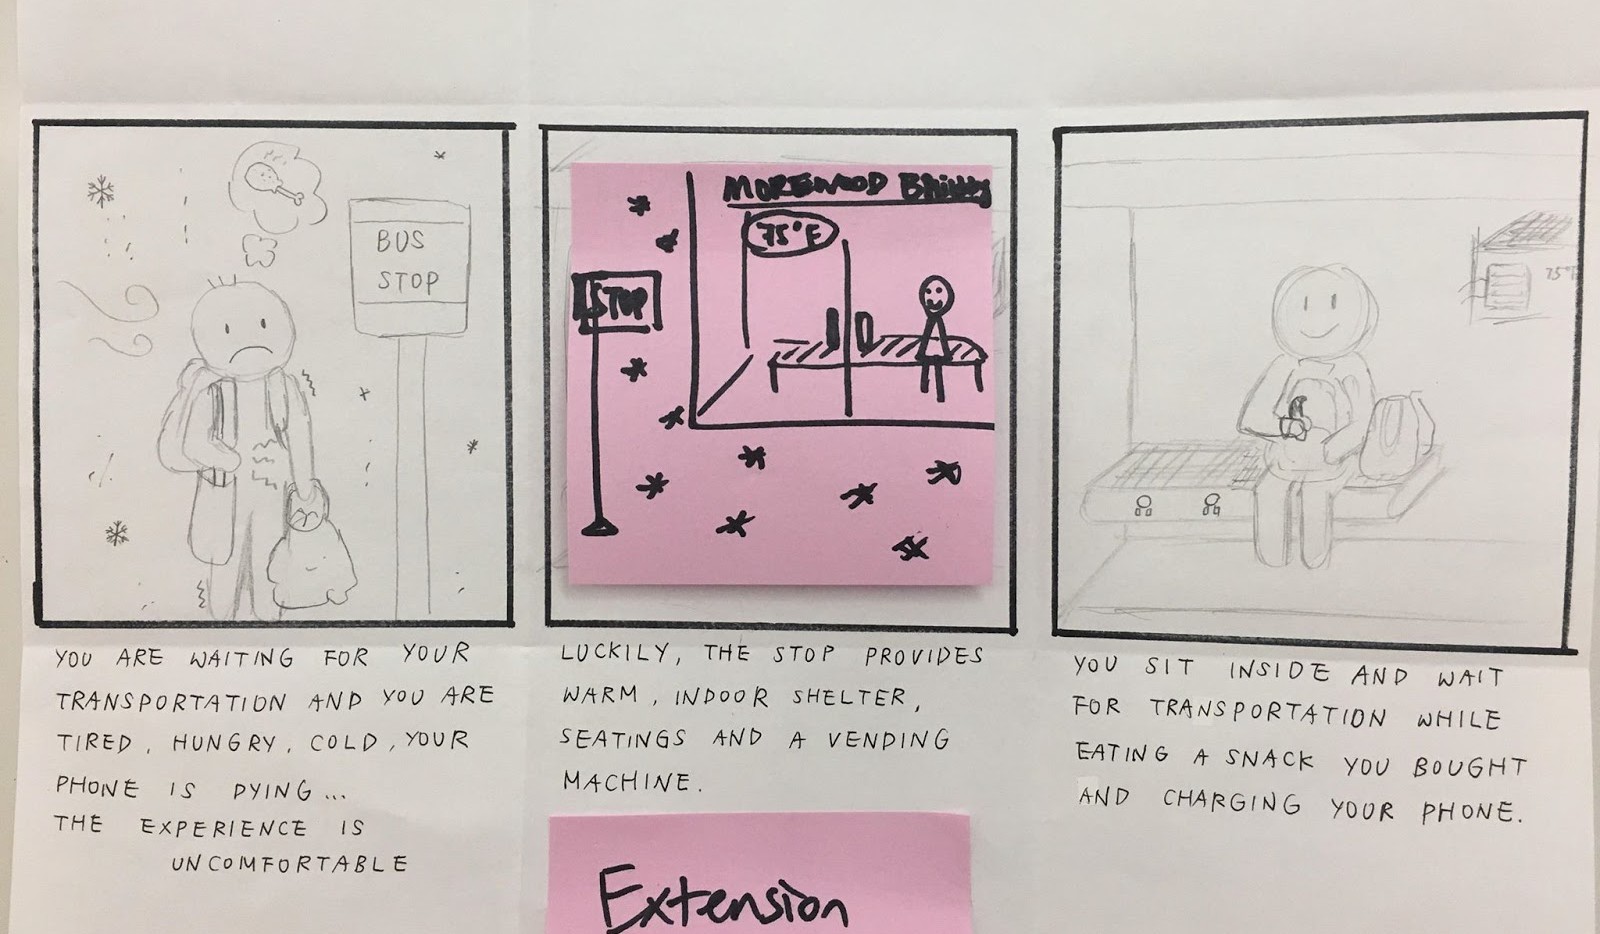 BUS
STOP
YOU ARE WAITING FOR YOUR
TRANSPORTATION AND YOU ARE
TIRED, HUNGRY, COLD, YOUR
PHONE IS DYING...
THE EXPERIENCE IS
UNCOMFORTABLE
MOREWOOD
75°F
STOP
LUCKILY, THE STOP PROVIDES
WARM, INDOOR SHELTER,
SEATINGS AND A VENDING
MACHINE.
Extension
75°F
YOU SIT INSIDE AND WAIT
FOR TRANSPORTATION WHILE
EATING A SNACK YOU BOUGHT
AND CHARGING YOUR PHONE.